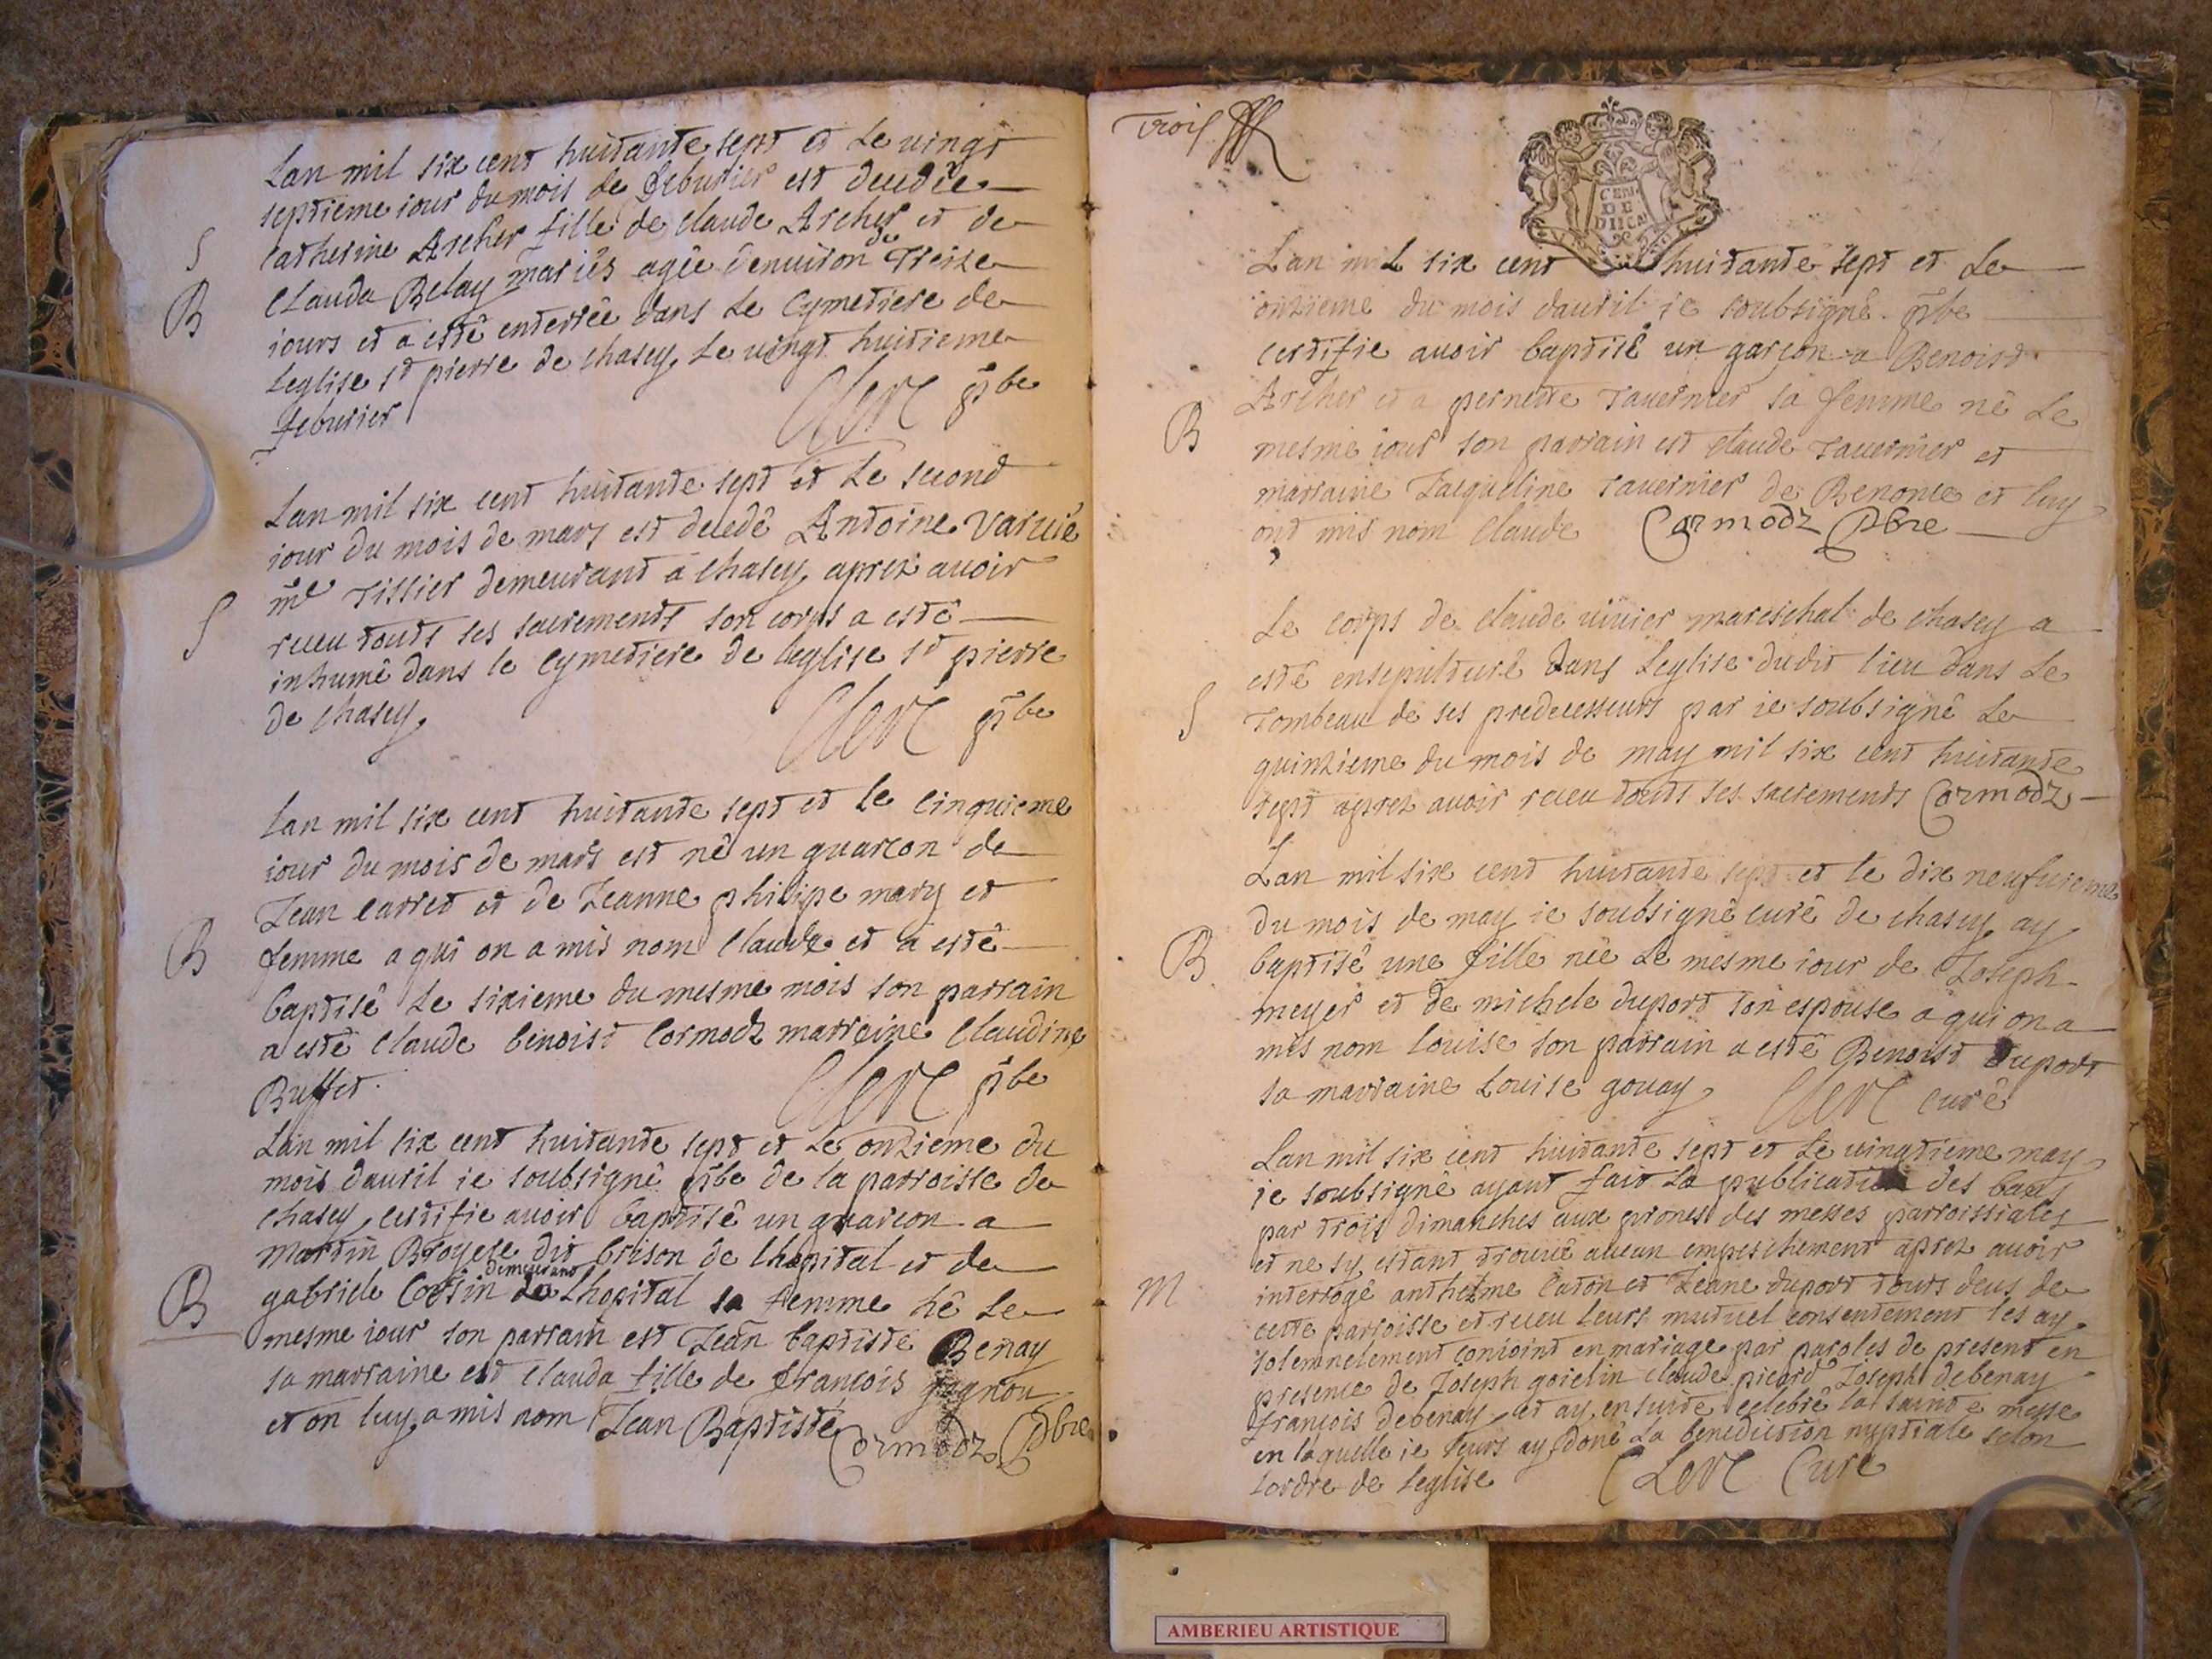 Lan mil six cent huitante sept et le vingt
septieme iour du mois de feburier est decedée
S
Catherine Archer fille de Claude Archer et de
B
Clauda Belay mariés agée denuiron de Treize
iours et a esté enterrée dans le Cymetiere de
Leglise st pierre de chasey le uingt huitieme
feburier
Clerc pbe
Lan mil six cent huitante sept et le second
iour du mois de mars est decedé Antoine
me Tissier demeurant a chasey aprez auoir
S
receu touts ses sacrements son corps a esté
inhumé dans le Cymetiere de leglise st pierre
de chasey
Clerc pbe
Lan mil six cent huitante sept et le Cinquieme
iour du mois de mars est né un guarcon de
Jean Carret et de Jeanne philipe mary et
B
femme a qui on a mis nom Claude et a esté
baptisé le sixieme du mesme mois son parrain
a esté Claude benoist Cormodz marreine Claudine
Buffet
Clerc pbe
Lan mil six cent huitante sept et le onzieme du
mois dauril ie soubsigné pbe de la parroisse de
chasey certifie auoir baptisé un guarcon a
martin Broyere dit brison de lhopital et de
demeurant
B
gabriele de Lhopital sa femme né le
mesme iour son parrain est Jean baptiste Benay
sa marraine est Clauda fille de francois
et on luy a mis nom Jean Baptiste
Cormodz Pbre
Trois
CEN
DE
DIICA
Lan mil six cent huitante sept et le
onzieme du mois dauril ie soubsigné pbe
certifie auoir baptisé un garcon a Benoist
Archer et a pernette Tauernier sa femme né le
B
mesme iour son parrain est Claude Tauernier et
marraine Jacqueline Tauernier de Benonce et luy
ont mis nom Claude Cormodz Pbre
Le corps de Claude uiuier mareschal de chasey a
esté ensepulturé dans Leglise dudit lieu dans le
S
Tombeau de ses predecesseurs par ie soubsigné le
quinzieme du mois de may mil six cent huitante
sept aprez auoir receu touts ses sacrements Cormodz
Lan mil six cent huitante sept et le dix neufuieme
du mois de may ie soubsigné curé de chasey ay
B
baptisé une fille née le mesme iour de Joseph
meyer et de michele duport son espouse a qui on a
mis nom Louise son parrain a esté Benoist duport
sa marraine Louise gouay
Clerc curé
Lan mil six cent huitante sept et le uingtieme may
ie soubsigné ayant fait la publication des bans
par trois dimanches aux prones des messes parroissiales
et ne sy estant trouué aucun empeschement aprez auoir
M
interrogé anthelme Caton et Jeane duport touts deus de
cette parroisse et receu leurs mutuel consentement les ay
solemnelement conioint en mariage par paroles de present en
presence de Joseph goielin claude picard Joseph debenay
francois debenay et ay en suite celebré la sainte messe
en laquelle ie leurs ay doné la benediction nuptiale selon
lordre de leglise
Clerc Curé
AMBERIEU ARTISTIQUE